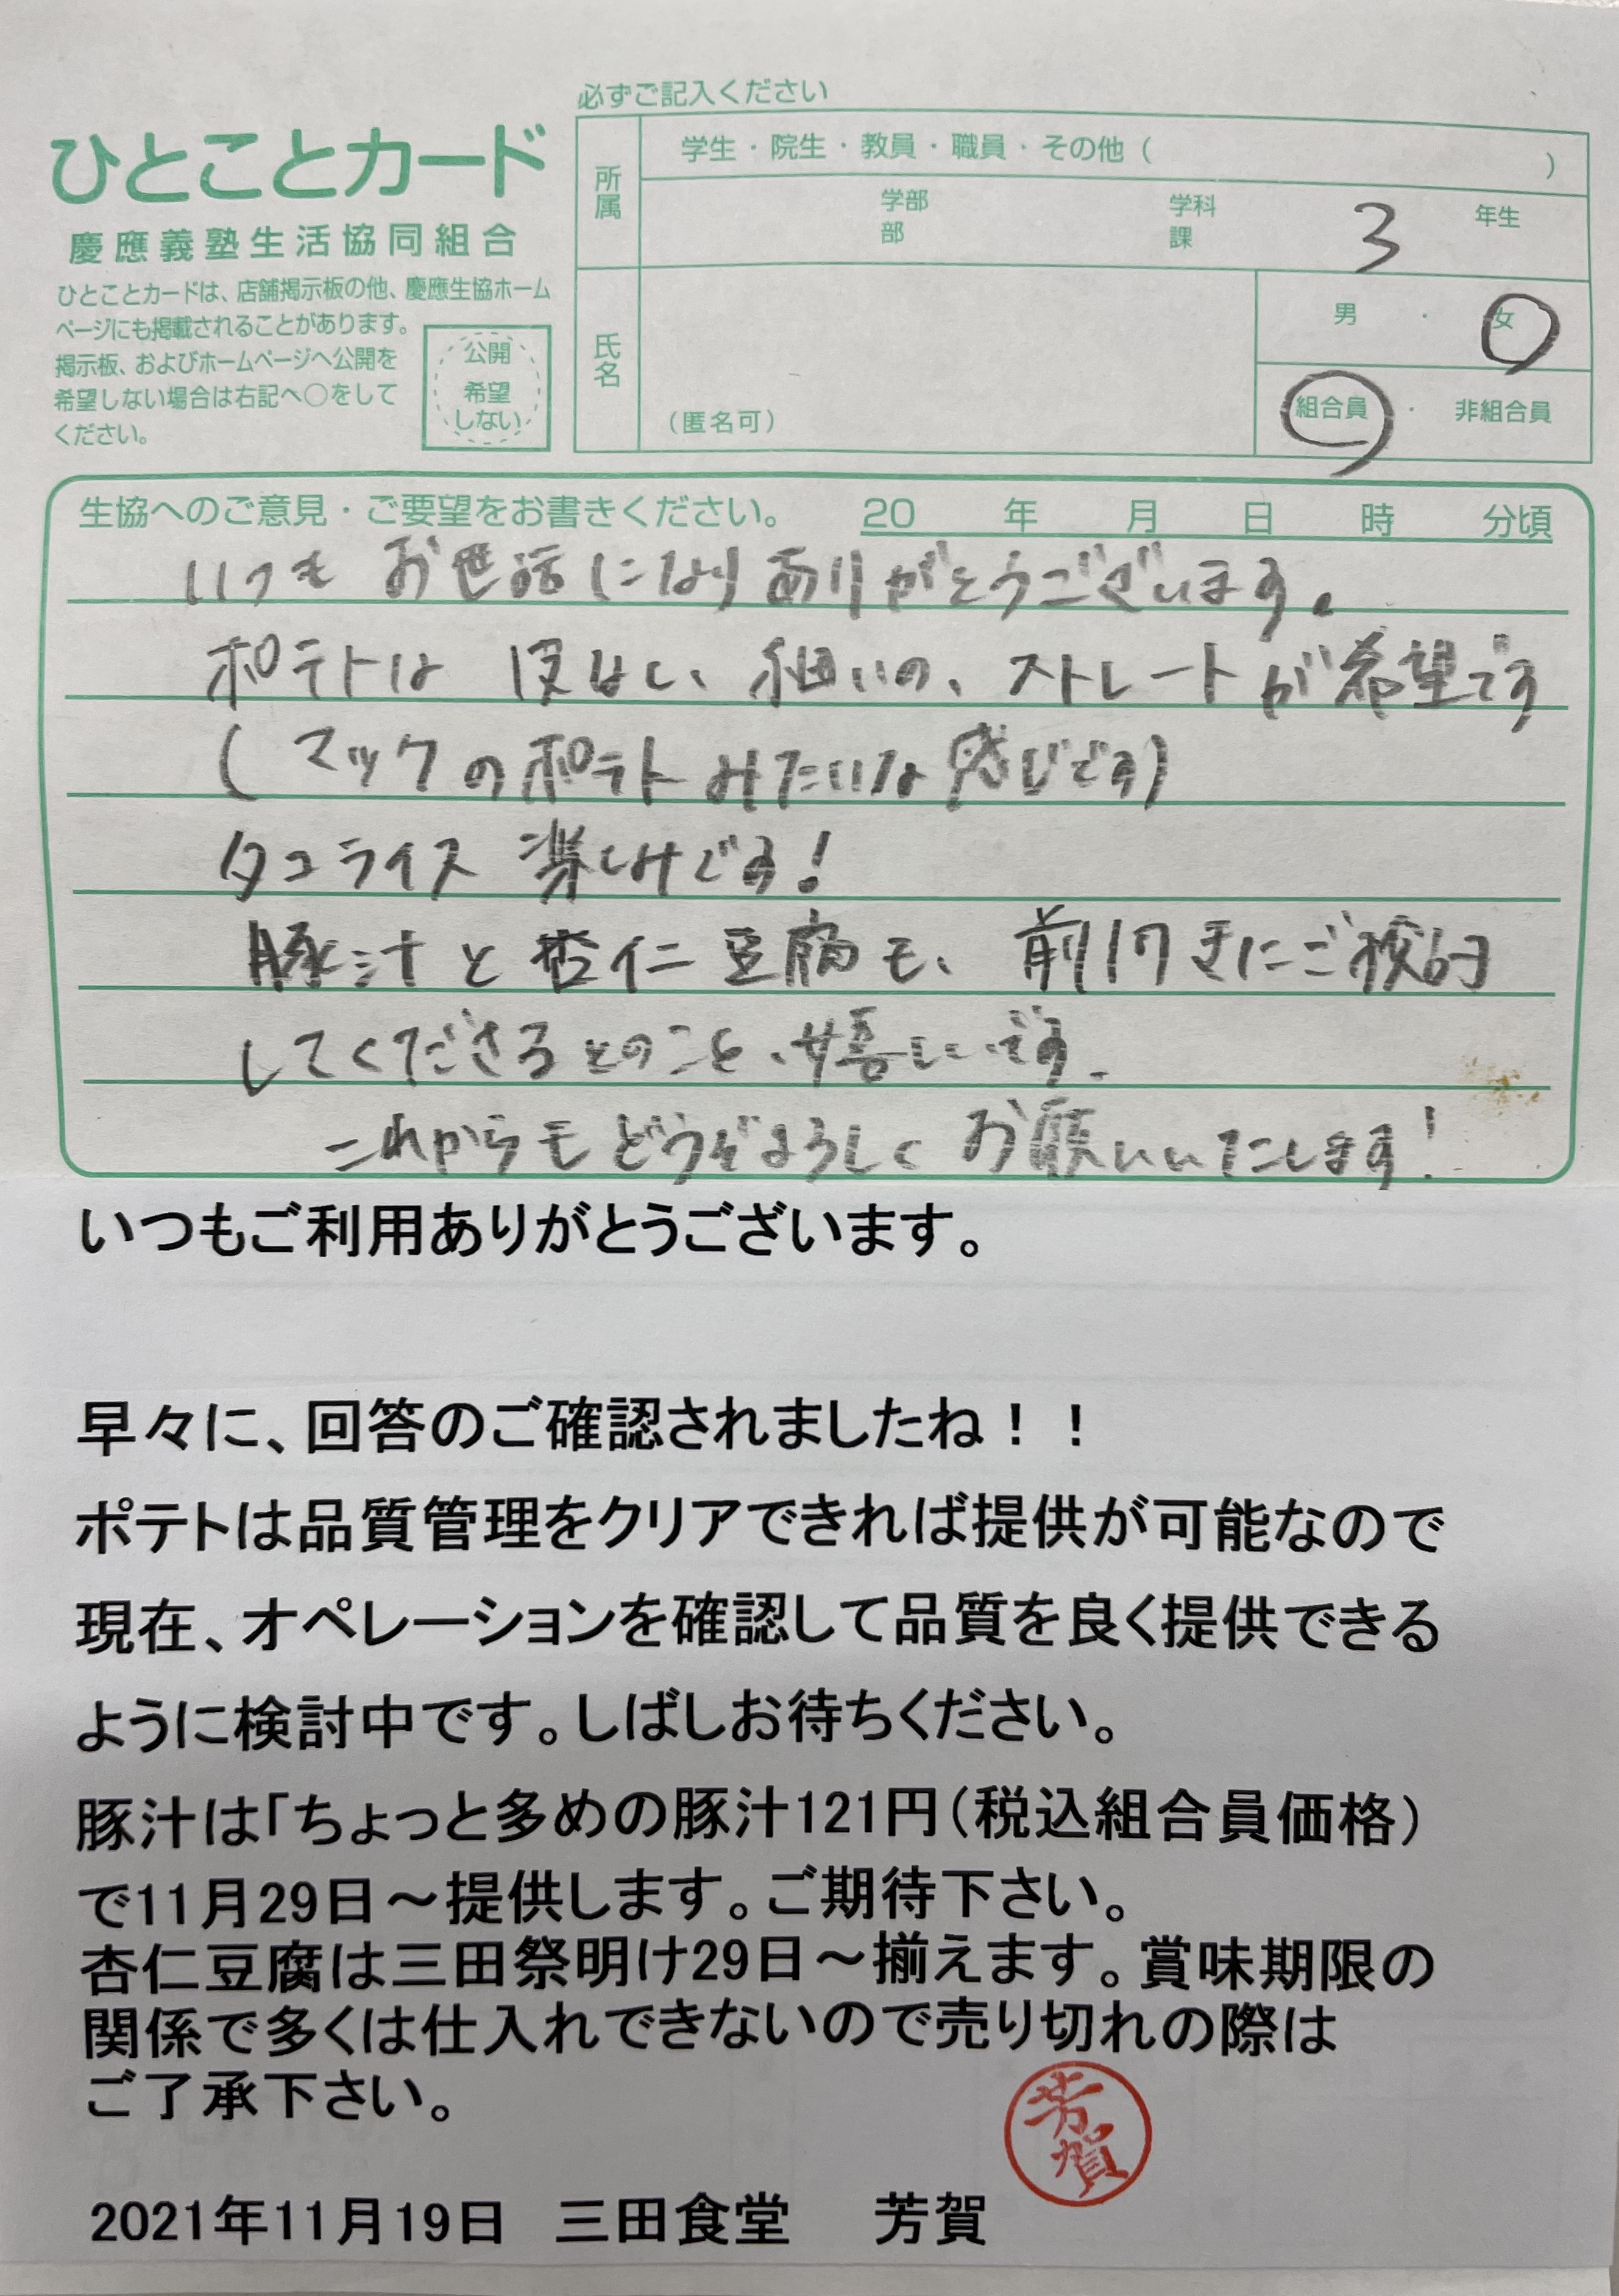 必ずご記入ください
ひとことカード
慶應義塾生活協同組合
ひとことカードは、店舗掲示板の他、慶應生協ホーム
ページにも掲載されることがあります。
掲示板、およびホームページへ公開を
希望しない場合は右記へ○をして
ください。
公開
希望
しない
所属
学生・院生・教員・職員・その他（　）
学部　学科　3　年生
部　課
氏名
（匿名可）
男・女
組合員・非組合員
生協へのご意見・ご要望をお書きください。　20　年　月　日　時　分頃
いつも お世話になりありがとうございます。
ポテトは 細いの、ストレートが希望です
（マックのポテトみたいな感じです）
タコライス 楽しみです！
豚汁と杏仁豆腐も、前向きにご検討
してくださるとのことを、嬉しいです。
これからもどうぞよろしくお願いいたします！
いつもご利用ありがとうございます。
早々に、回答のご確認されましたね！！
ポテトは品質管理をクリアできれば提供が可能なので
現在、オペレーションを確認して品質を良く提供できる
ように検討中です。しばしお待ちください。
豚汁は「ちょっと多めの豚汁121円（税込組合員価格）
で11月29日～提供します。ご期待下さい。
杏仁豆腐は三田祭明け29日～揃えます。賞味期限の
関係で多くは仕入れできないので売り切れの際は
ご了承下さい。
芳賀
2021年11月19日　三田食堂　芳賀